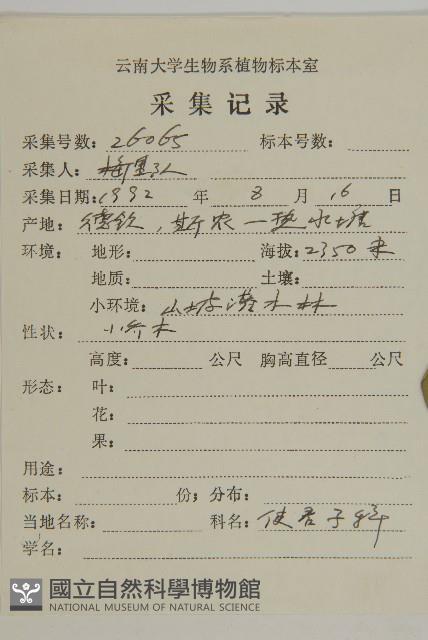 云南大学生物系植物标本室
采集记录
采集号数: 26065 标本号数:
采集人: 梅里队
采集日期: 1992 年 8 月 16 日
产地: 德钦, 斯农—热水塘
环境: 地形: 海拔: 2350 米
地质: 土壤:
小环境: 山坡灌木林
性状: 小乔木
高度: 公尺 胸高直径 公尺
形态: 叶:
花:
果:
用途:
标本: 份; 分布:
当地名称: 科名: 使君子科
学名:
國立自然科學博物館
NATIONAL MUSEUM OF NATURAL SCIENCE